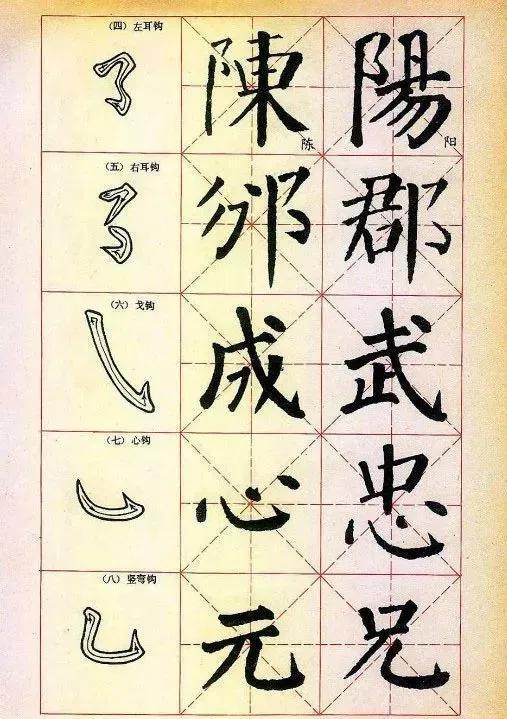 （四）左耳钩 陳 陈 陽 阳
（五）右耳钩 邠 郡
（六）戈钩 成 武
（七）心钩 心 忠
（八）竖弯钩 元 兄